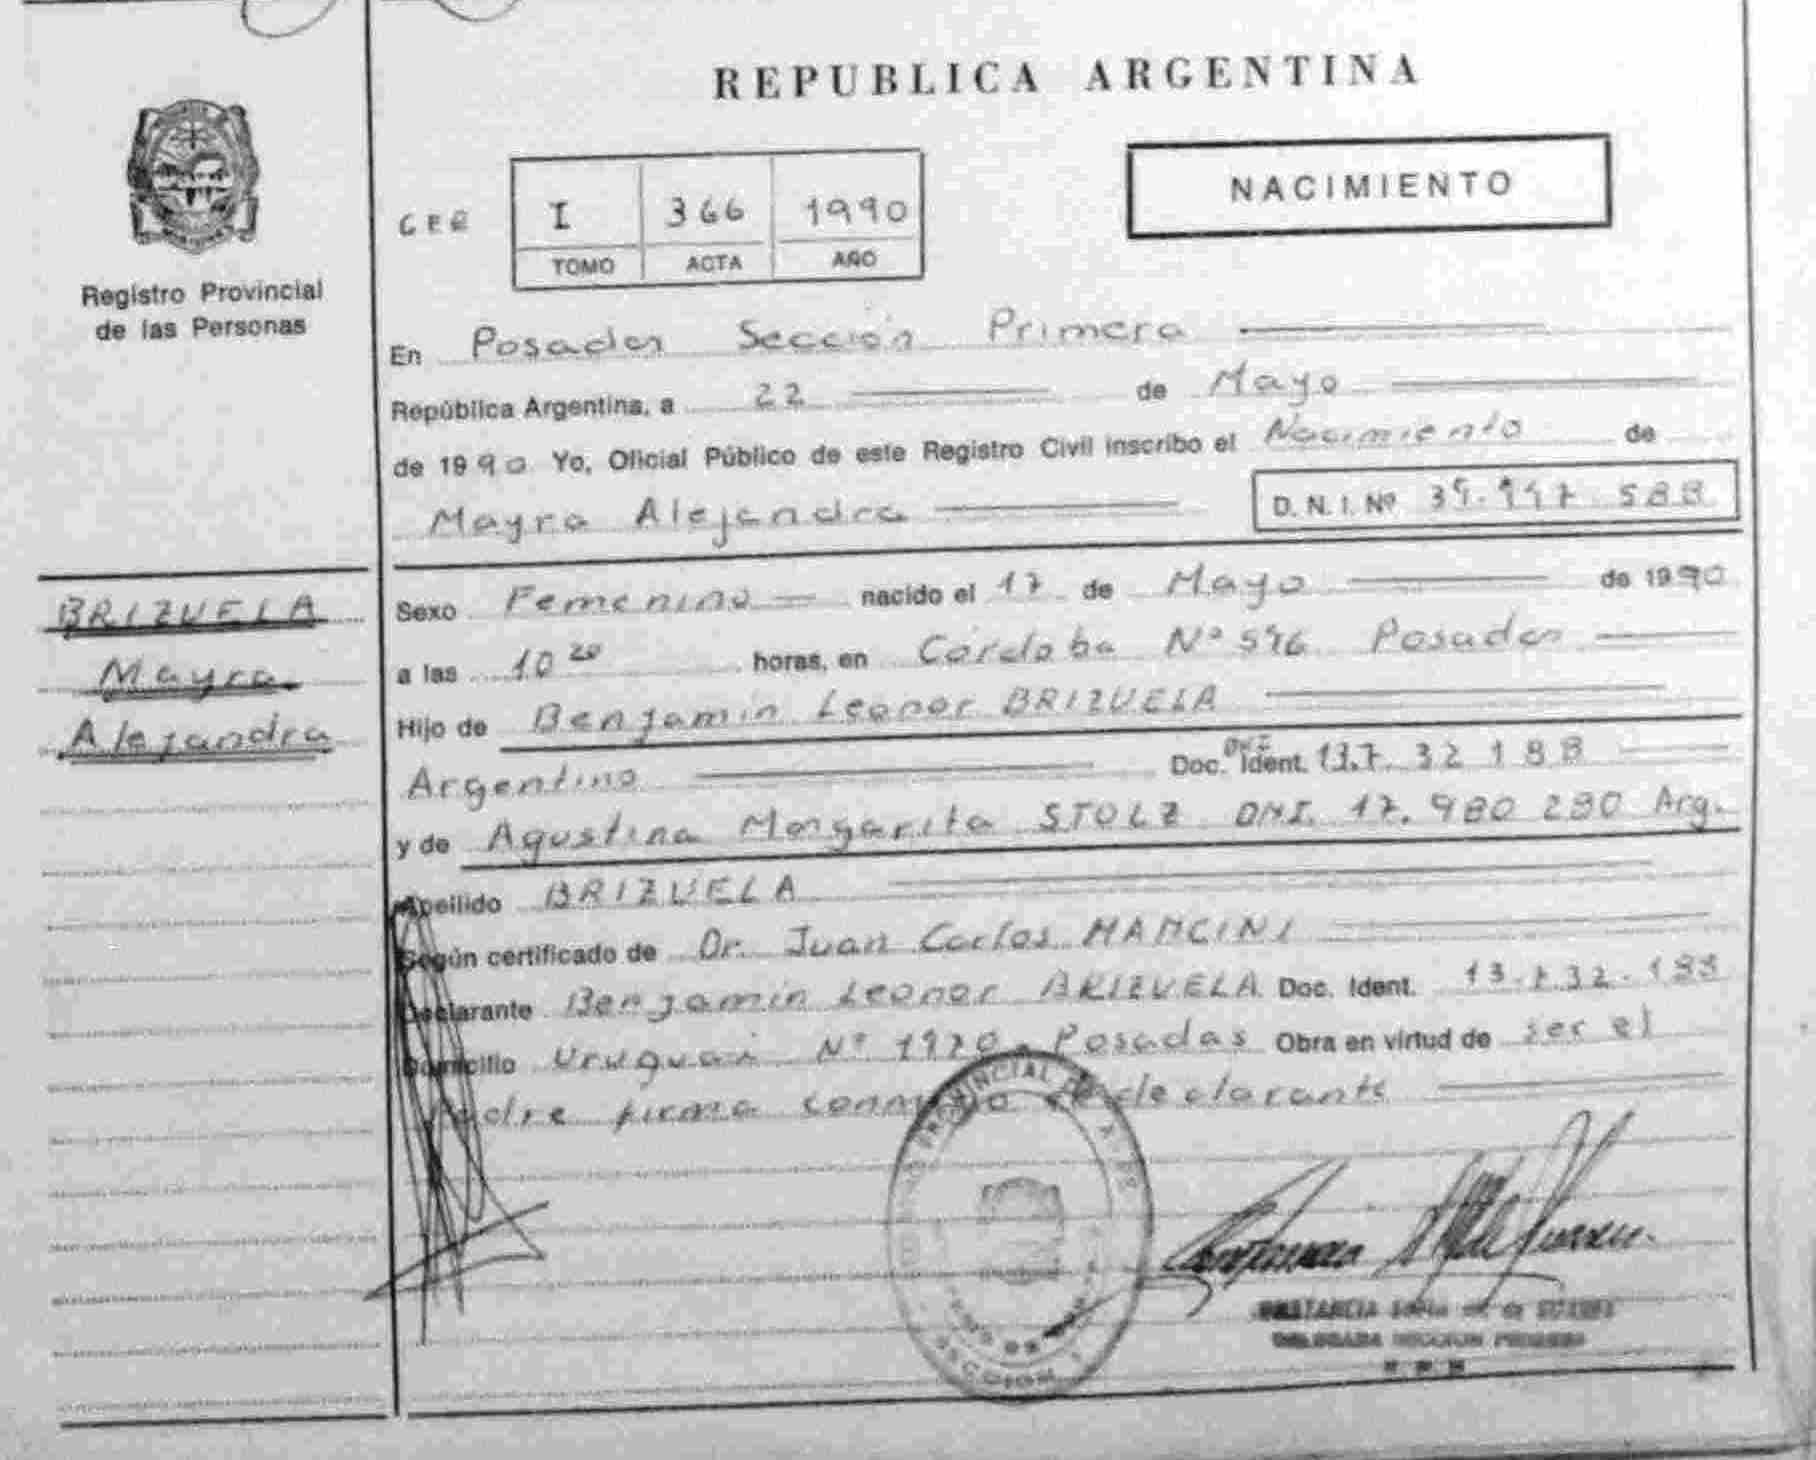 REPUBLICA ARGENTINA
NACIMIENTO
I 366 1990
TOMO ACTA AÑO
Registro Provincial
de las Personas
En Posadas Sección Primera
República Argentina, a 22 de Mayo
de 1990 Yo, Oficial Público de este Registro Civil inscribo el Nacimiento de
Mayra Alejandra D.N.I. Nº
BRIZUELA
Mayra
Alejandra
Sexo Femenino nacido el 17 de Mayo de 1990
a las 10 20 horas, en Córdoba Nº Posadas
Hijo de Benjamin Leonor BRIZUELA
Argentino Doc. Ident. DNI 13.7 32 188
y de Agustina Margarita STOLZ DNI. 17.980 280 Arg.
Apellido BRIZUELA
Según certificado de Dr. Juan Carlos MANCINI
Declarante Benjamin Leonor BRIZUELA Doc. Ident. 13.732.188
Domicilio Uruguai Nº Posadas Obra en virtud de ser el
Padre firma conmigo declarante